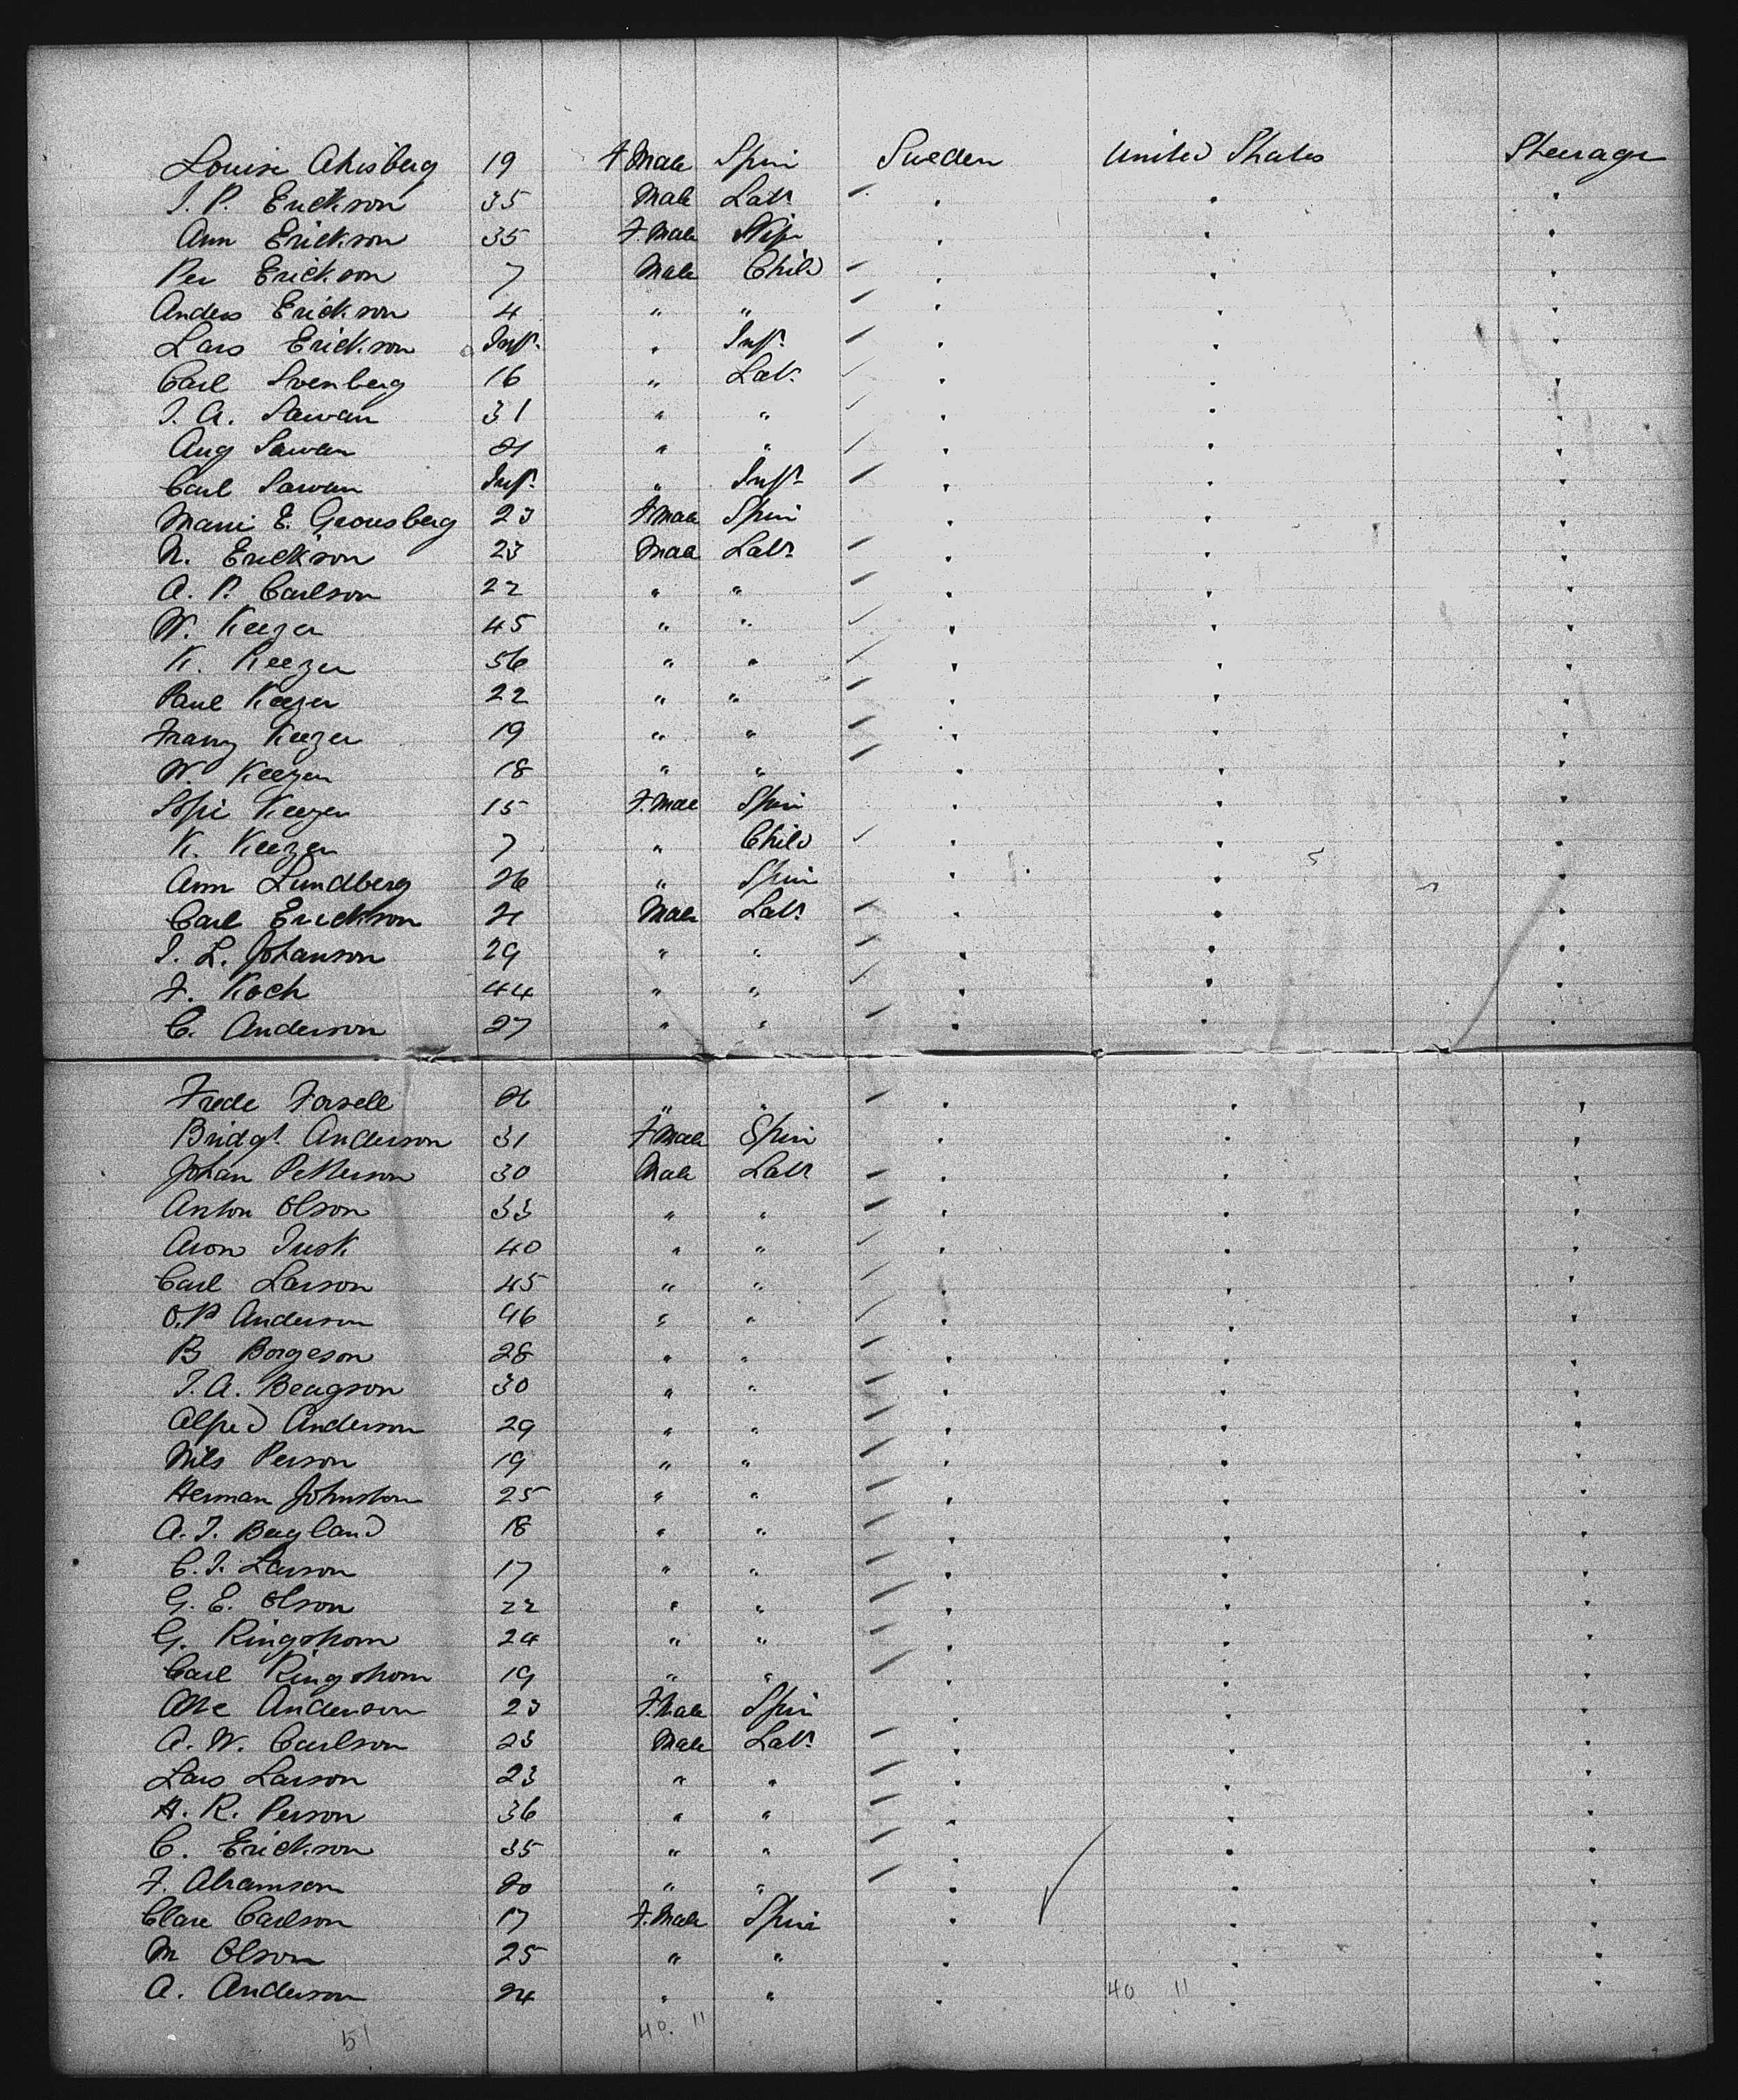 Louise Ahisberg 19 F Male Spin Sweden United States Steerage
J. P. Erickson 35 Male Labr " " "
Ann Erickson 35 F. Male Wife " " "
Per Erickson 7 Male Child " " "
Anders Erickson 4 " " " " "
Lars Erickson Inft. " Inft. " " "
Carl Svenberg 16 " Labr " " "
J. A. Sawan 31 " " " " "
Aug Sawan 21 " " " " "
Carl Sawan Inft. " Inft. " " "
E. 23 F Male Spin " " "
N. Erickson 23 Male Labr " " "
A. P. Carlson 22 " " " " "
W. Keezer 45 " " " " "
K. Keezer 56 " " " " "
Paul Keezer 22 " " " " "
Franz Keezer 19 " " " " "
W. Keezer 18 " " " " "
Sofie Keezer 15 F. Male Spin " " "
K. Keezer 7 " Child " " "
Ann Lundberg 26 " Spin " " "
Carl Erickson 21 Male Labr " " "
J. L. Johanson 29 " " " " "
F. Koch 44 " " " " "
C. Anderson 27 " " " " "
Frede Forsell 26 " " " " "
Bridgt. Anderson 31 F Male Spin " " "
Johan Petterson 30 Male Labr " " "
Anton Olson 33 " " " " "
Aron Tusk 40 " " " " "
Carl Larson 45 " " " " "
O. P. Anderson 46 " " " " "
B Borgeson 28 " " " " "
J. A. Beagson 30 " " " " "
Alfred Anderson 29 " " " " "
Nils Person 19 " " " " "
Herman Johnston 25 " " " " "
A. J. Bagland 18 " " " " "
C. J. Larson 17 " " " " "
G. E. Olson 22 " " " " "
G. Ringshom 24 " " " " "
Carl Ringshom 19 " " " " "
Anderson 23 F. Male Spin " " "
A. W. Carlson 23 Male Labr " " "
Lars Larson 23 " " " " "
A. R. Person 36 " " " " "
C. Erickson 35 " " " " "
F. Abramson 20 " " " " "
Clare Carlson 17 F. Male Spin " " "
M Olson 25 " " " " "
A. Anderson 24 " " " " "
40 11
51 40. 11